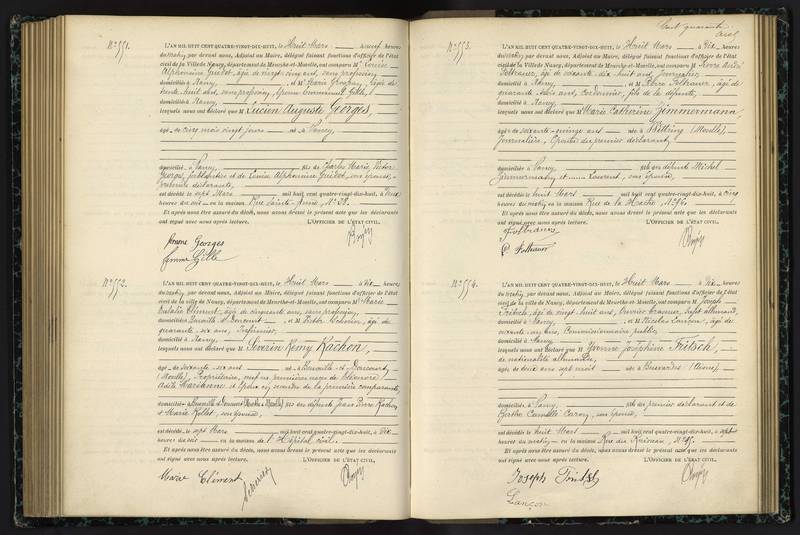 N° 551.
L'AN MIL HUIT CENT QUATRE-VINGT-DIX-HUIT, le Huit Mars à neuf heures
du matin, par devant nous, Adjoint au Maire, délégué faisant fonctions d'officier de l'état
civil de la Ville de Nancy, département de Meurthe-et-Moselle, ont comparu Me Louise
Alphonsine âgée de vingt cinq ans, sans profession,
domiciliée à Nancy, et Me Marie âgée de
trente huit ans, sans profession, épouse
domiciliée à Nancy,
lesquels nous ont déclaré que M Lucien Auguste Georges,
âgé de cinq mois vingt jours né à Nancy
domicilié à Nancy, fils de Charles Marie Victor
Georges, ferblantier et de Louise Alphonsine son épouse,
première déclarante,
est décédé le sept Mars mil huit cent quatre-vingt-dix-huit, à deux
heures du soir en la maison Rue Sainte-Anne, N° 28.
Et après nous être assuré du décès, nous avons dressé le présent acte que les déclarants
ont signé avec nous après lecture. L'OFFICIER DE L'ÉTAT CIVIL,
Georges
N° 552.
L'AN MIL HUIT CENT QUATRE-VINGT-DIX-HUIT, le Huit Mars à Dix heures
du matin, par devant nous, Adjoint au Maire, délégué faisant fonctions d'officier de l'état
civil de la ville de Nancy, département de Meurthe-et-Moselle, ont comparu Me Marie
Clément, âgée de cinquante ans, sans profession,
domiciliée à et M Victor âgé de
quarante six ans, Infirmier,
domicilié à Nancy,
lesquels nous ont déclaré que M Séverin Remy Rachon,
âgé de soixante six ans né à
(Moselle), Propriétaire, veuf en premières noces de
Adèle Marianne et époux en secondes de la première comparante,
domicilié à fils des défunts Jean Pierre Rachon,
et Marie son épouse,
est décédé le sept Mars mil huit cent quatre-vingt-dix-huit, à Dix
heures du soir en la maison de l'Hôpital civil.
Et après nous être assuré du décès, nous avons dressé le présent acte que les déclarants
ont signé avec nous après lecture. L'OFFICIER DE L'ÉTAT CIVIL,
Marie Clément
Cent quarante
N° 553.
L'AN MIL HUIT CENT QUATRE-VINGT-DIX-HUIT, le Huit Mars à Dix heures
du matin, par devant nous, Adjoint au Maire, délégué faisant fonctions d'officier de l'état
civil de la Ville de Nancy, département de Meurthe-et-Moselle, ont comparu M Pierre
âgé de soixante dix huit ans, journalier,
domicilié à Nancy, et M Pierre âgé de
quarante trois ans, cordonnier, fils de la défunte,
domicilié à Nancy,
lesquels nous ont déclaré que M Marie Catherine Zimmermann,
âgée de soixante-quinze ans née à Bettring (Moselle),
journalière, épouse du premier déclarant,
domiciliée à Nancy, fille des défunts Michel
Zimmermann et Laurent, son épouse,
est décédée le huit Mars mil huit cent quatre-vingt-dix-huit, à cinq
heures du matin en la maison Rue de la Hache, N° 96.
Et après nous être assuré du décès, nous avons dressé le présent acte que les déclarants
ont signé avec nous après lecture. L'OFFICIER DE L'ÉTAT CIVIL,
N° 554.
L'AN MIL HUIT CENT QUATRE-VINGT-DIX-HUIT, le Huit Mars à Dix heures
du matin, par devant nous, Adjoint au Maire, délégué faisant fonctions d'officier de l'état
civil de la ville de Nancy, département de Meurthe-et-Moselle, ont comparu M Joseph
Fritsch, âgé de vingt huit ans, Ouvrier sujet allemand,
domicilié à Nancy, et M Nicolas Lançon, âgé de
soixante ans, Commissionnaire public,
domicilié à Nancy
lesquels nous ont déclaré que M Yvonne Joséphine Fritsch,
de nationalité allemande,
âgée de deux ans sept mois née à (Aisne),
domiciliée à Nancy, fille du premier déclarant et de
Berthe Camille Caron, son épouse,
est décédée le huit Mars mil huit cent quatre-vingt-dix-huit, à sept
heures du matin en la maison Rue du Ruisseau, N° 25.
Et après nous être assuré du décès, nous avons dressé le présent acte que les déclarants
ont signé avec nous après lecture. L'OFFICIER DE L'ÉTAT CIVIL,
Joseph Fritsch
Lançon